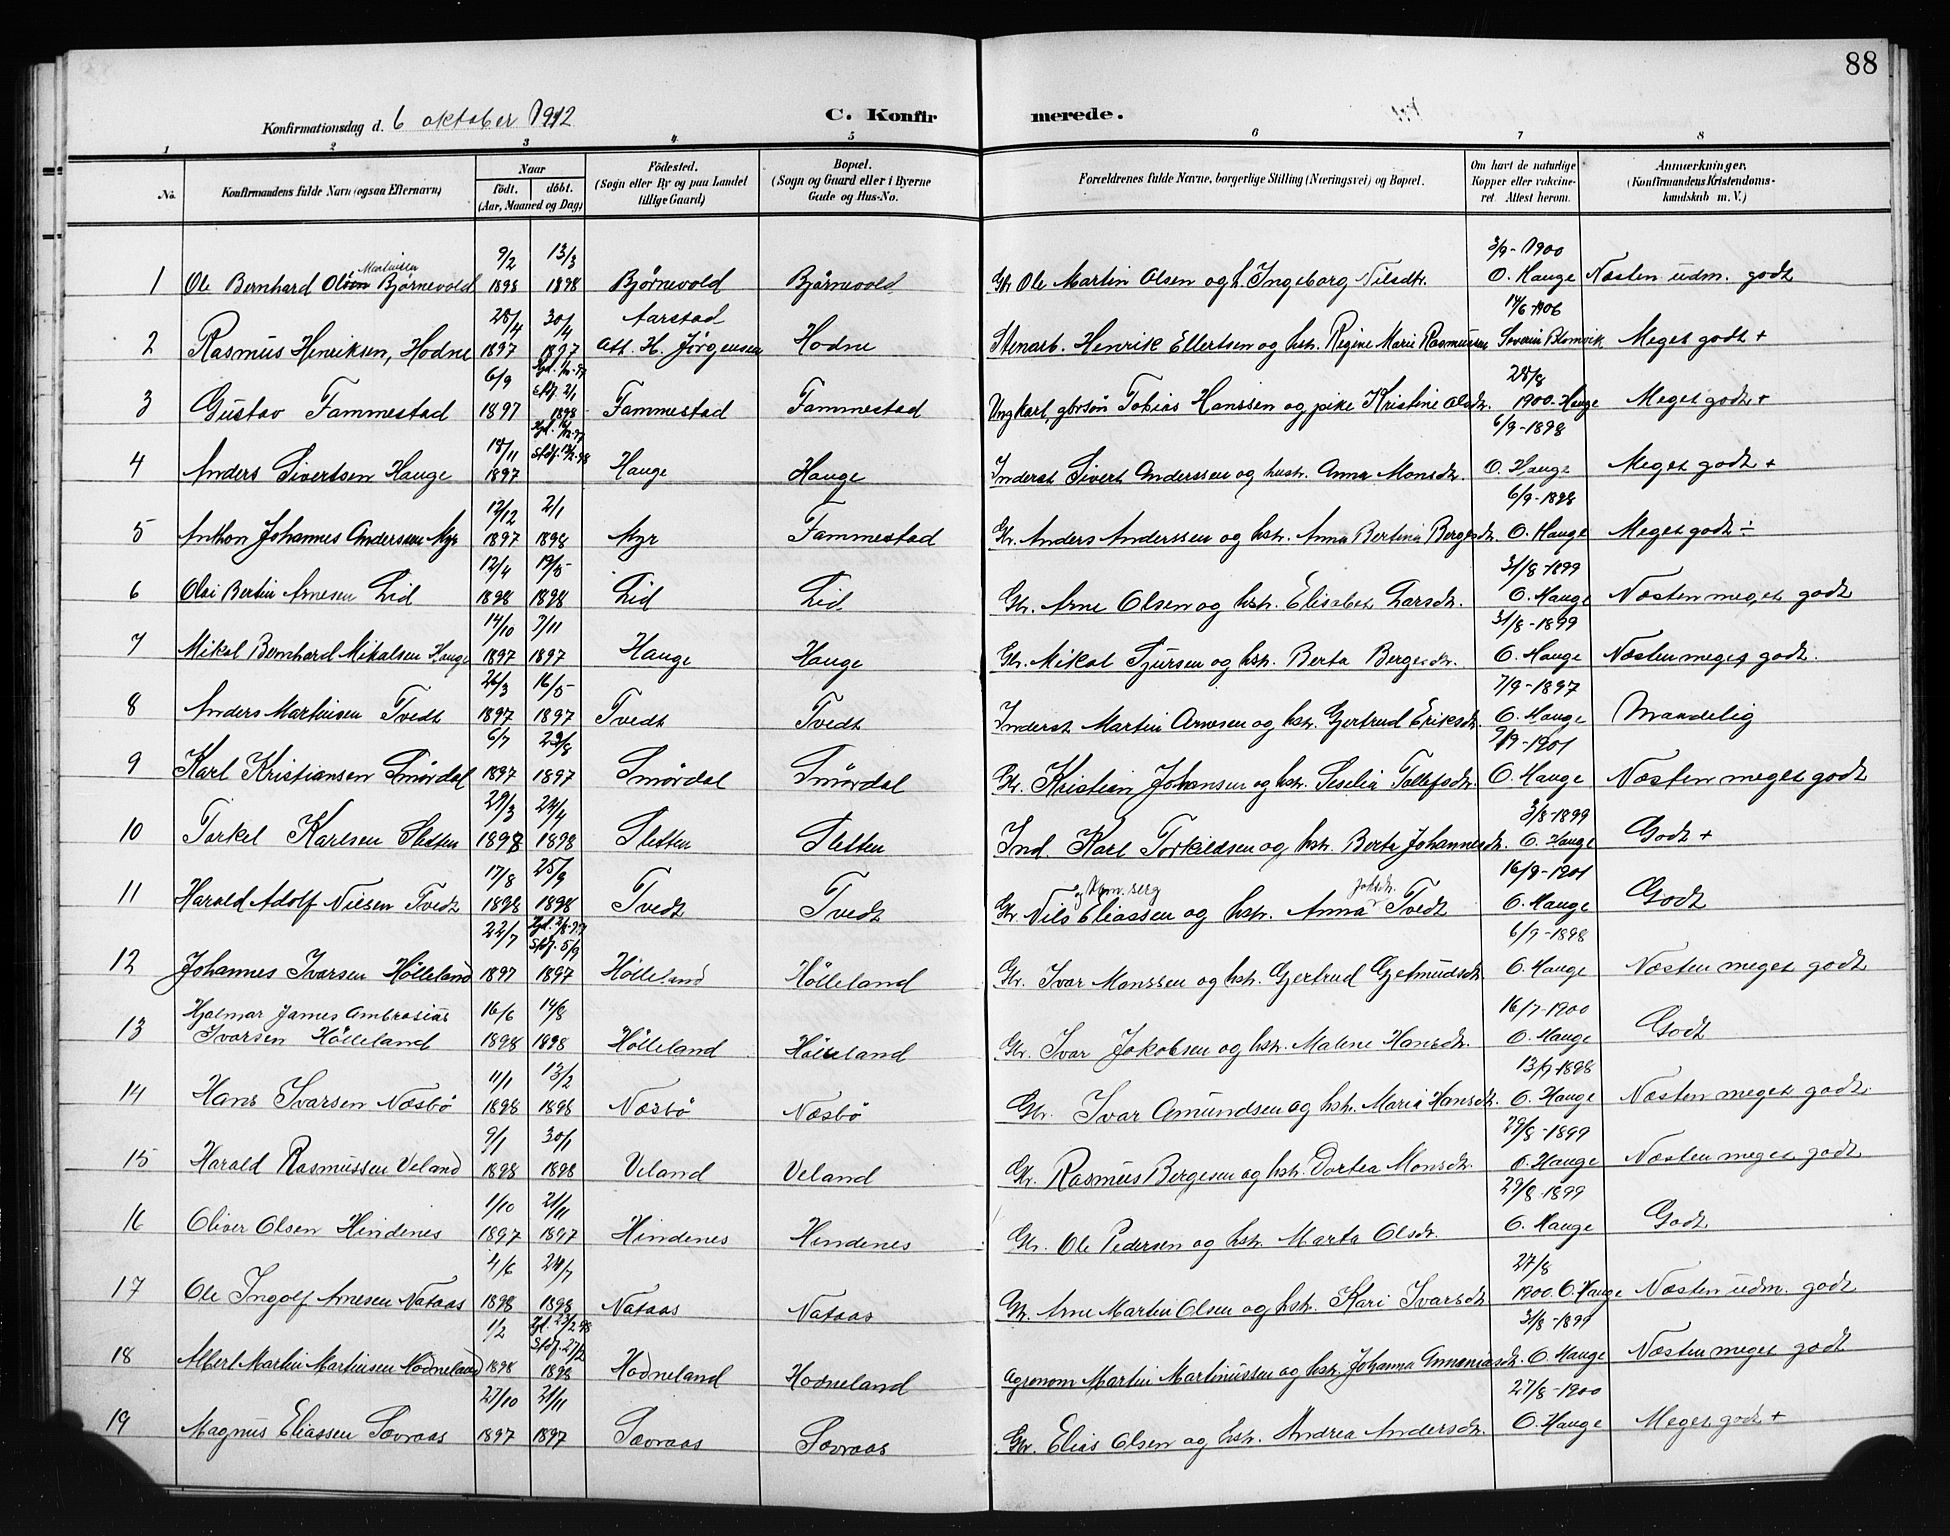 88
Konfirmationsdag d. 6 oktober 1912 C. Konfirmerede.
1 2 3 4 5 6 7 8
No. Konfirmandens fulde Navn (ogsaa Efternavn) Naar födt. döbt. (Aar, Maaned og Dag) Födested. (Sogn eller By og paa Landet tillige Gaard) Bopæl. (Sogn og Gaard eller i Byerne Gade og Hus-No. Forældrenes fulde Navne, borgerlige Stilling (Næringsvei) og Bopæl. Om havt de naturlige Kopper eller vakcineret. Attest herom. Anmærkninger. (Konfirmandens Kristendomskundskab m. V.)
1 Ole Bernhard Olsen Martinsen Bjørnevold 9/2 1898 13/3 1898 Bjørnevold Bjørnevold Gbr. Ole Martin Olsen og h. Ingeborg Nilsdtr. 3/9-1900 O. Hauge Næsten udm. godt
2 Rasmus Henriksen, Hodne 28/4 1897 30/4 1897 Aarstad Att. H. Jörgensen Hodne Stenarb. Henrik Ellertsen og hstr. Regine Marie Rasmussen 14/6 1906 Severin Blomvik Meget godt +
3 Gustav Fammestad 6/9 1897 Stfj. 2/1 1898 Fammestad Fammestad Ungkarl, gbrsön Tobias Hanssen og pike Kristine Olsdtr. 28/8 1900. Hauge Meget godt +
4 Anders Sivertsen Hauge 18/11 1897 Hauge Hauge Inderst Sivert Anderssen og hustr. Anna Monsdtr. 6/9-1898 O. Hauge Meget godt +
5 Anthon Johannes Anderssen Myr 12/12 1897 2/1 1898 Myr Fammestad Gbr. Anders Anderssen og hstr. Anna Bertina Bergesdtr. 6/9-1898 O. Hauge Meget godt ÷
6 Olai Bertin Arnesen Lid 12/4 1898 19/5- 1898 Lid Lid Gbr. Arne Olsen og hstr. Elisabet Larsdtr. 31/8-1899 O. Hauge Næsten meget godt
7 Mikal Bernhard Mikalsen Hauge 14/10 1897 7/11 1897 Hauge Hauge Gbr. Mikal Sjursen og hstr. Berta Bergesdtr. 31/8-1899 O. Hauge Næsten meget godt.
8 Anders Martinsen Tvedt 26/3 1897 16/5- 1897 Tvedt Tvedt Inderst Martin Arnesen og hstr. Gjertrud Eriksdtr. 7/9-1897 O. Hauge Maadelig
9 Karl Kristiansen Smördal 6/7 1897 29/8 1897 Smördal Smördal Gbr. Kristian Johansen og hstr. Seselia Tollefsdtr. 9/9-1901 O. Hauge Næsten meget godt
10 Torkel Karlsen Sletten 29/3 1898 24/4 1898 Sletten Sletten Ind. Karl Torkildsen og hstr. Berta Johannesdtr. 3/8-1899 O. Hauge Godt +
11 Harald Adolf Nilsen Tvedt 17/8 1898 25/9 1898 Tvedt Tvedt Gbr. Nils Eliassen og hstr. Anna Tvedt 16/9-1901 O. Hauge Godt
12 Johannes Ivarsen Hölleland 22/7 1897 Stfj. 5/9 1897 Hölleland Hölleland Gbr. Ivar Monssen og hstr. Gjertrud Gjetmundsdtr. 6/9-1898 O. Hauge Næsten meget godt
13 Hjalmar James Ambrosius Ivarsen Hölleland 16/6 1898 14/8 1898 Hölleland Hölleland Gbr. Ivar Jakobsen og hstr. Malene Hansdtr. 16/7-1900 O. Hauge Godt
14 Hans Ivarsen Næsbö 11/1 1898 13/2 1898 Næsbö Næsbö Gbr. Ivar Amundsen og hstr. Maria Hansdtr. 13/9-1898 O. Hauge Næsten meget godt.
15 Harald Rasmussen Veland 9/1 1898 30/1 1898 Veland Veland Gbr. Rasmus Bergesen og hstr. Dortea Monsdtr. 29/8-1899 O. Hauge Næsten meget godt
16 Oliver Olsen Hindenes 1/10 1897 21/11 1897 Hindenes Hindenes Gbr. Ole Pedersen og hstr. Marta Olsdtr. 29/8-1899 O. Hauge Godt
17 Ole Ingolf Arnesen Nataas 4/6 1898 24/7 1898 Nataas Nataas Gbr. Arne Martin Olsen og hstr. Kari Ivarsdtr. 27/8 1900. O. Hauge Næsten udm. godt
18 Albert Martin Martinsen Hodneland 1/2 1898 Hjd. 23/2 98 Stfj. 27/2 1898 Hodneland Hodneland Agronom Martin Martinussen og hstr. Johanna Annaniasdtr. 31/8-1899 O. Hauge Næsten meget godt
19 Magnus Eliassen Sævraas 27/10 1897 21/11 1897 Sævraas Sævraas Gbr. Elias Olsen og hstr. Andrea Andersdtr. 27/8-1900 O. Hauge Meget godt +